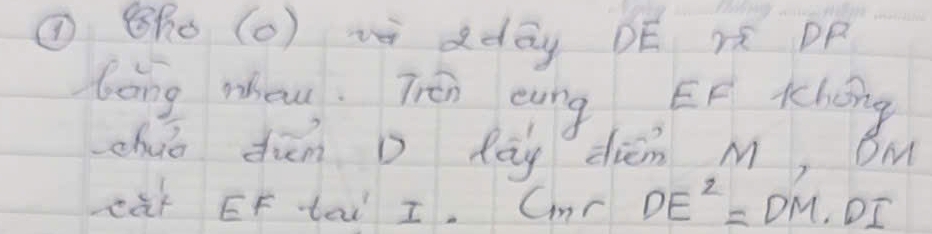 ① Cho (O) và 2 dây DE và DF
bằng nhau. Trên cung EF không
chứa điểm D lấy điểm M, DM
cắt EF tại I. Cmr DE² = DM.DI